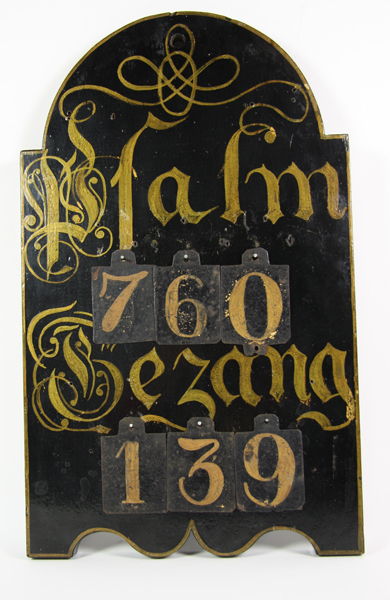 Psalm
760
Gezang
139